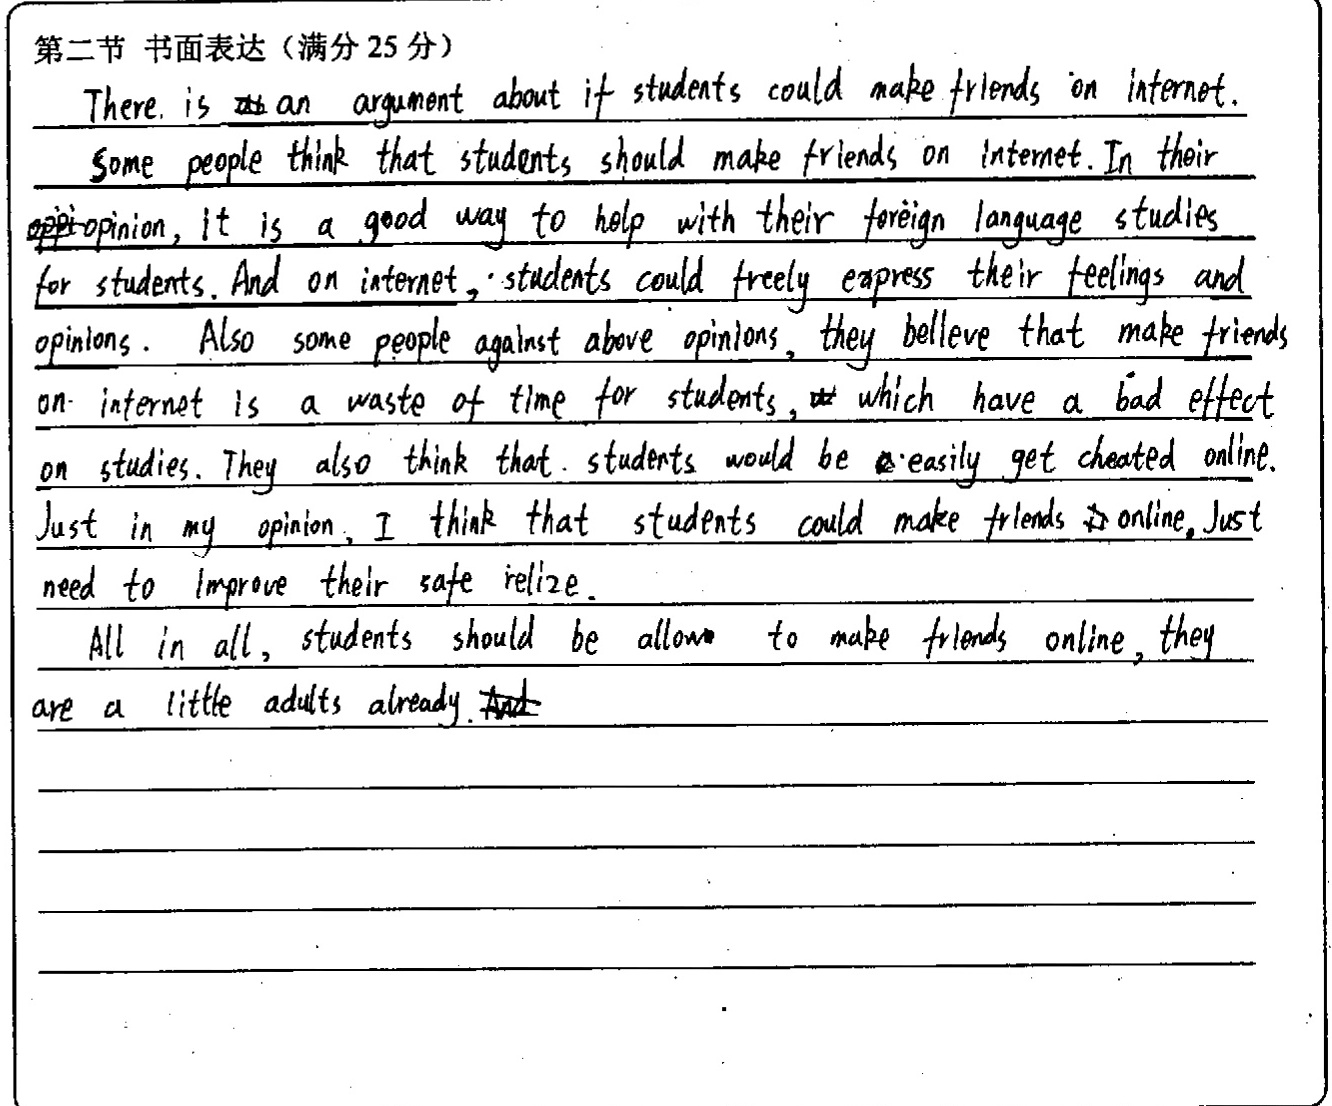 第二节 书面表达（满分 25 分）
There is an argument about if students could make friends on internet.
Some people think that students should make friends on internet. In their
opinion, it is a good way to help with their foreign language studies
for students. And on internet, students could freely express their feelings and
opinions. Also some people against above opinions, they believe that make friends
on internet is a waste of time for students, which have a bad effect
on studies. They also think that students would be easily get cheated online.
Just in my opinion, I think that students could make friends online, Just
need to improve their safe relize.
All in all, students should be allow to make friends online, they
are a little adults already.